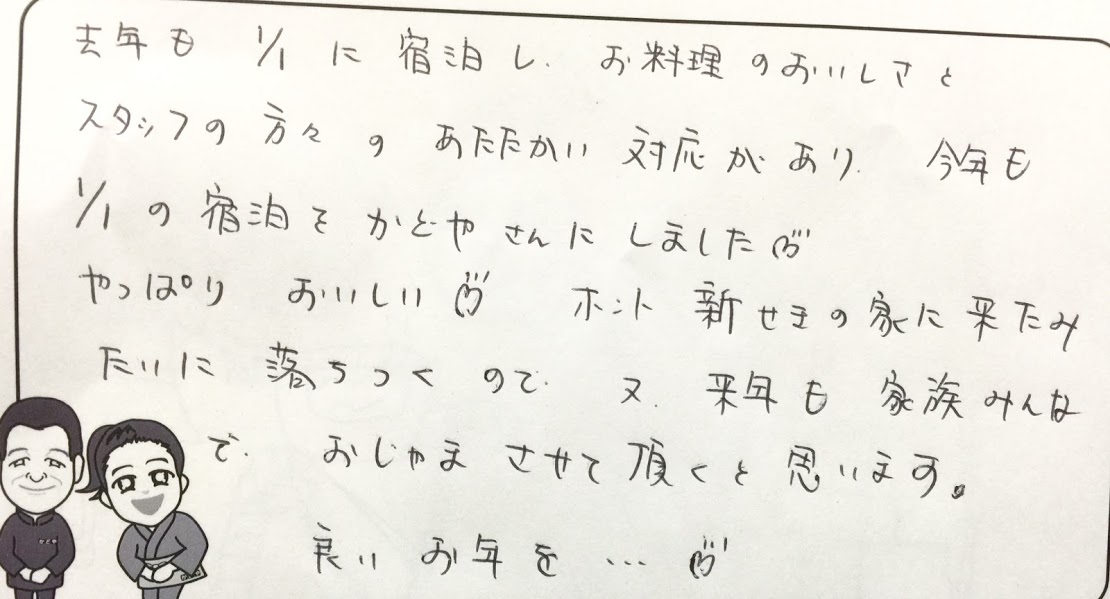 去年も 1/1 に 宿泊し、お料理のおいしさと
スタッフの方々の あたたかい 対応があり、今年も
1/1 の 宿泊を かどやさんに しました
やっぱり おいしい ホント 新せきの家に来たみ
たいに 落ちつくので、又、来年も 家族みんな
で、おじゃま させて頂くと思います。
良い お年を …
かどや